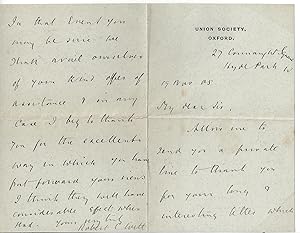 UNION SOCIETY,
OXFORD.
27 Connaught Square
Hyde Park W
19 Nov 05
My dear Sir,
Allow me to
send you a private
line to thank you
for your long &
interesting letter which
In that event you
may be sure we
shall avail ourselves
of your kind offer of
assistance & in any
case I beg to thank
you for the excellent
way in which you have
put forward your views
I think they will have
considerable effect when
read. Yours very truly
Robert C Witt